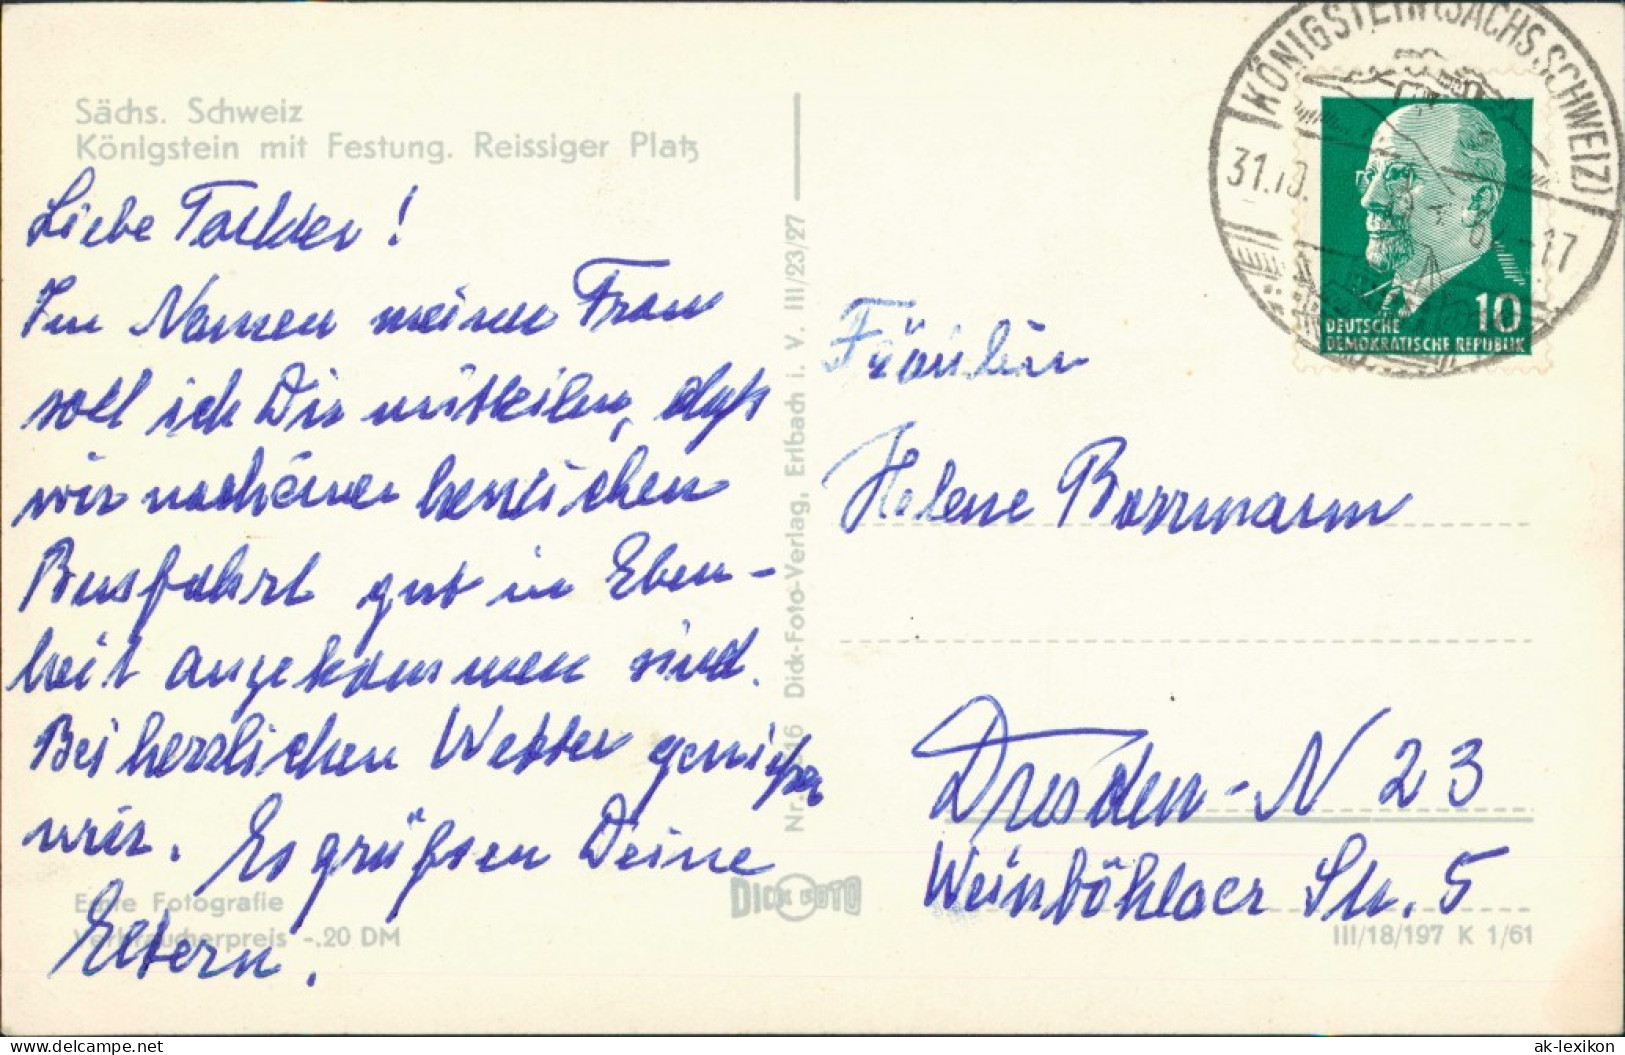 Sächs. Schweiz
Königstein mit Festung. Reissiger Platz
Liebe Tochter!
Im Namen meiner Frau
soll ich Dir mitteilen, daß
wir nach einer herrlichen
Busfahrt gut in Eben-
heit angekommen sind.
Bei herrlichen Wetter genießen
wir. Es grüßen Deine
Eltern.
Echte Fotografie
Verbraucherpreis -.20 DM
Dick-Foto-Verlag, Erlbach i. V. III/23/27
DICK FOTO
KÖNIGSTEIN (SÄCHS. SCHWEIZ)
31.10.
-17
10
DEUTSCHE
DEMOKRATISCHE REPUBLIK
Fräulein
Helene Borrmann
Dresden-N 23
Weinböhlaer Str. 5
III/18/197 K 1/61
ak-lexikon
www.delcampe.net